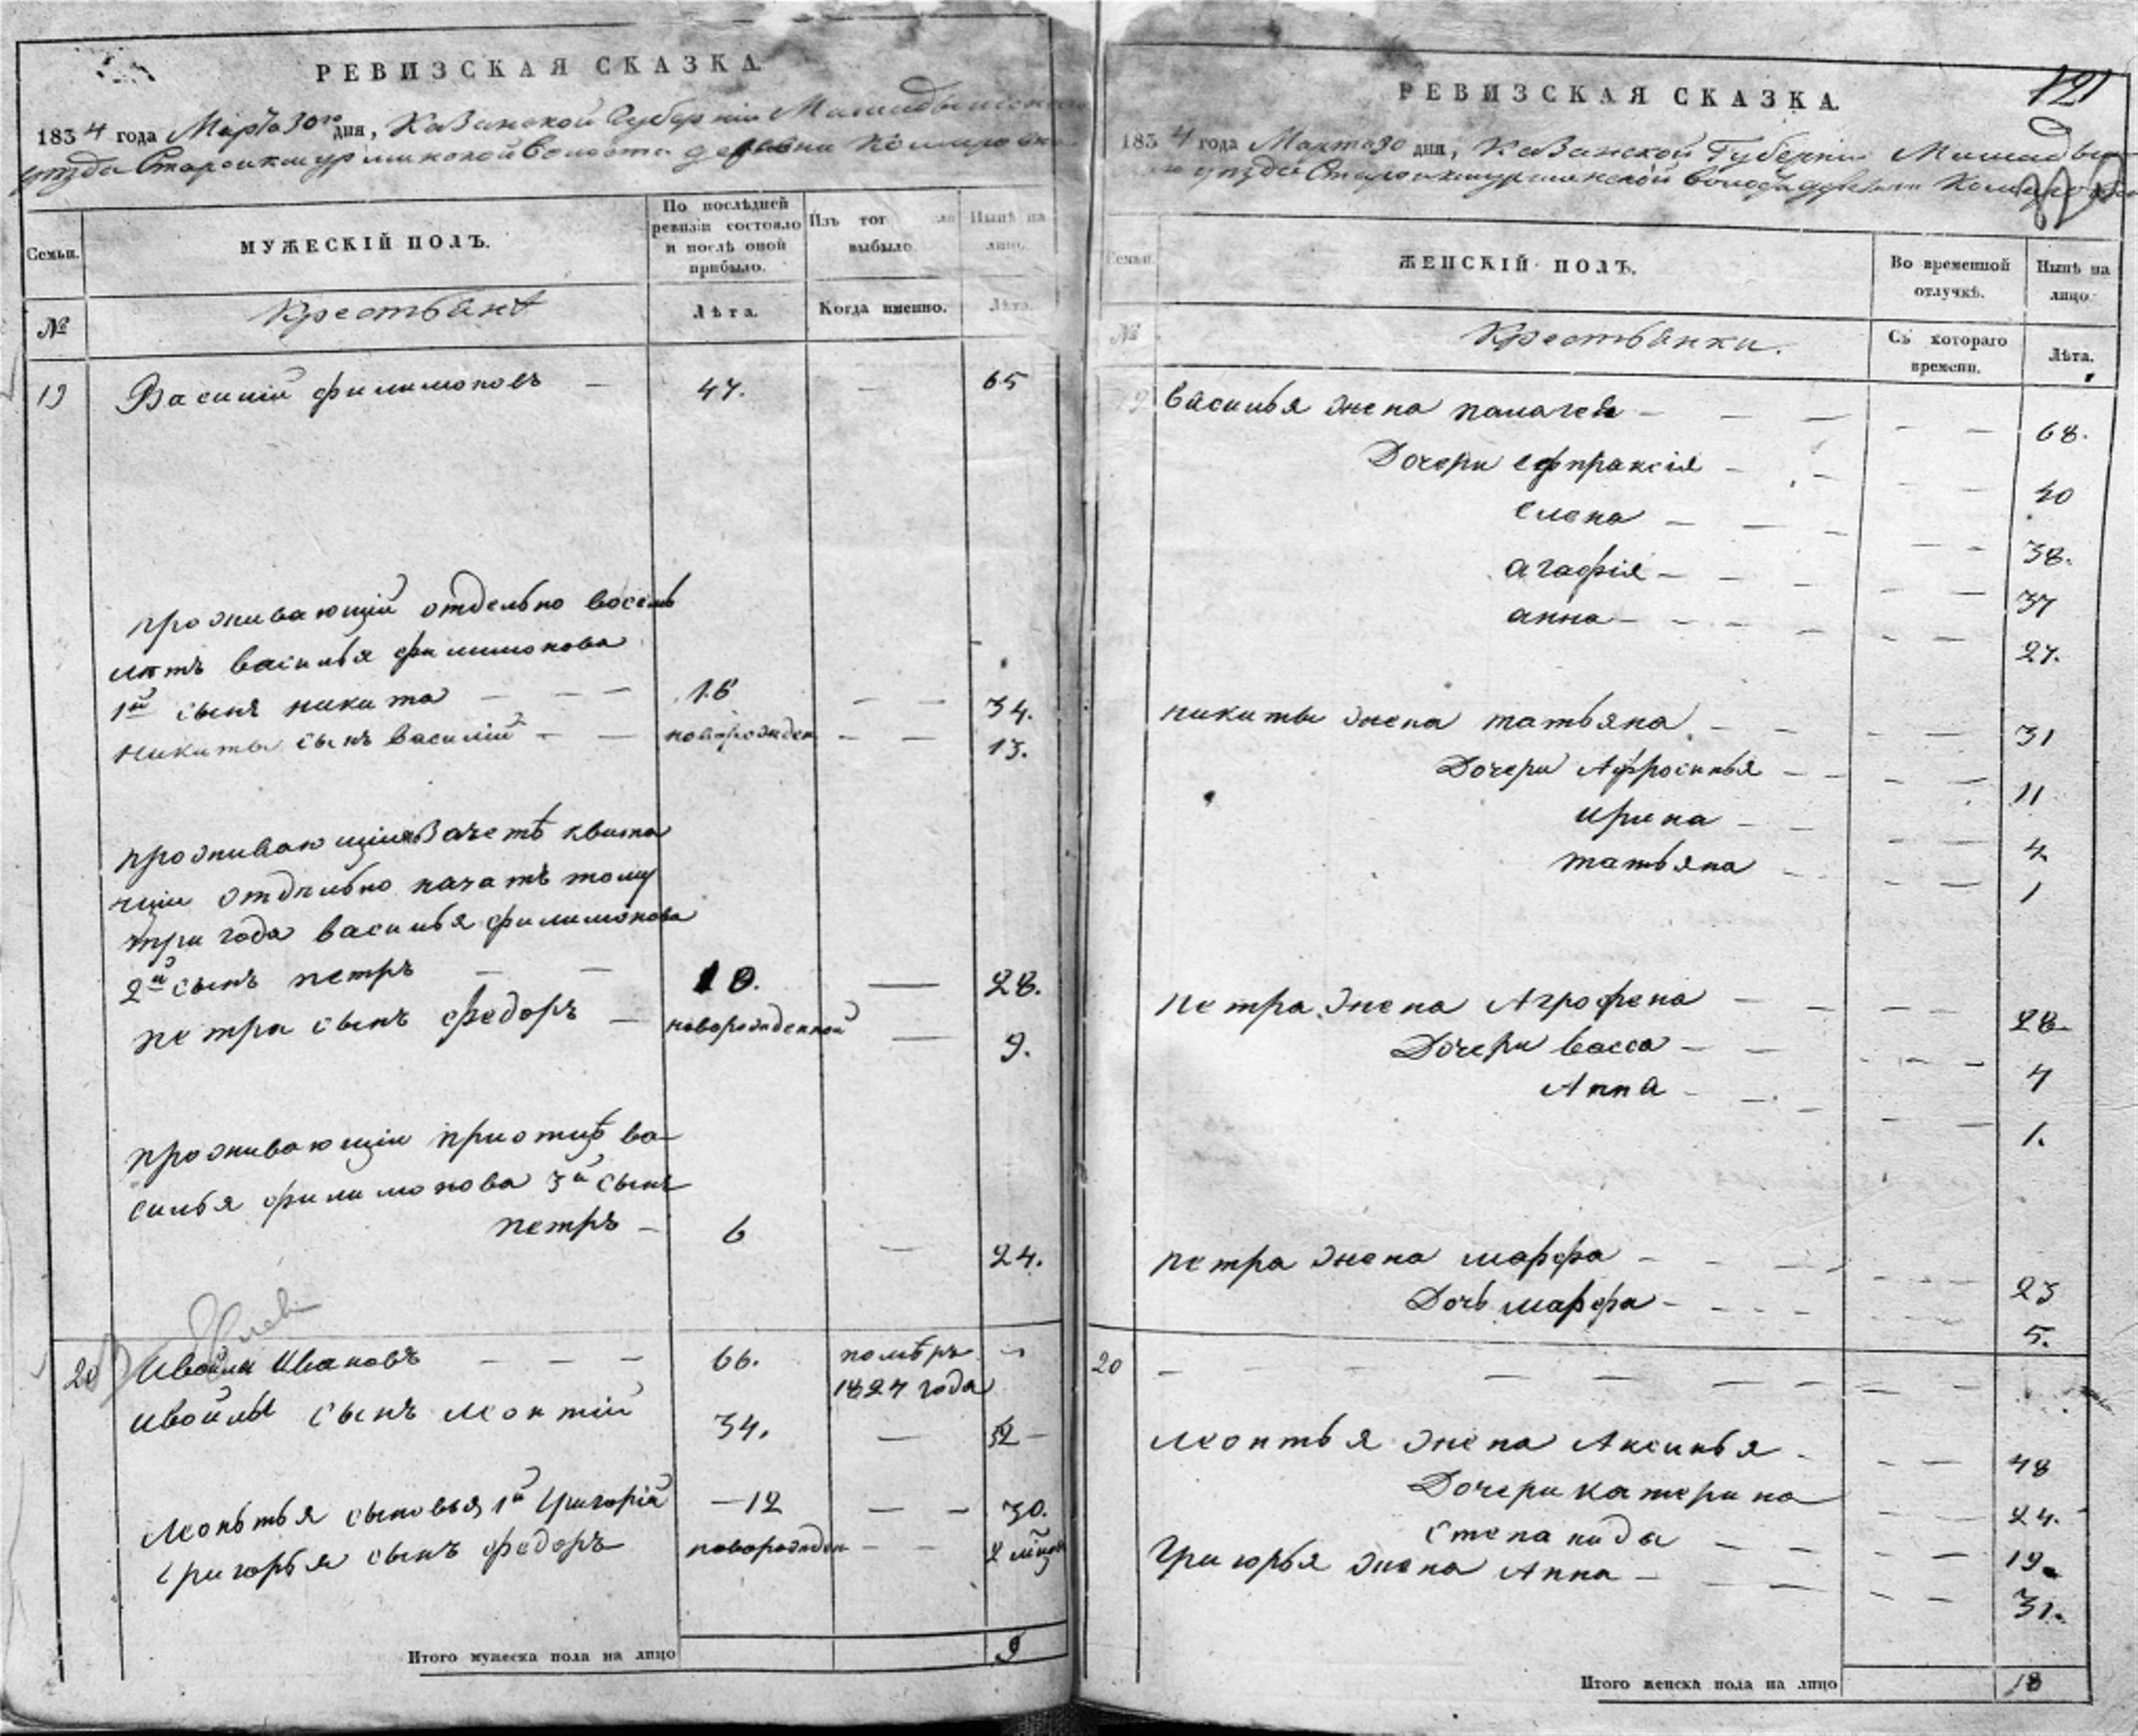 РЕВИЗСКАЯ СКАЗКА.
1834 года Марта 30го дня, Казанской Губерніи
уѣзда Староикшурминской волости деревни
Семьи.
МУЖЕСКІЙ ПОЛЪ.
По послѣдней ревизіи состояло и послѣ оной прибыло.
Изъ тог выбыло.
Нынѣ на лицо.
№
Крестьянѣ
Лѣта.
Когда именно.
Лѣта.
19 Василій филимоновъ — 47. — 65
проживающій отдельно восемь
лѣтъ василья филимонова
1й сынъ никита — — — 16 — — 34.
никиты сынъ василій — — новорожден — — 13.
проживающій Взачетѣ квита
нціи отдѣльно назатъ тому
три года василья филимонова
2й сынъ петръ — — 10. — 28.
петра сынъ федоръ — новорожденной — 9.
проживающій приотцѣ ва
силья филимонова 3й сынъ
петръ — 6 — 24.
20 Ивойла Ивановъ — — — 66. помѣръ 1827 года —
ивойлы сынъ леонтій 34. — 52 —
леонтья сыновья 1й григорій — 12 — — 30.
григорья сынъ федоръ новорожден — — 2
Итого мужеска пола на лицо 9
121
РЕВИЗСКАЯ СКАЗКА.
1834 года Марта 30 дня, Казанской Губерніи
уѣзда Староикшурминской волости деревни
Семьи.
ЖЕНСКІЙ ПОЛЪ.
Во временной отлучкѣ.
Нынѣ на лицо.
№
Крестьянки.
Съ котораго времени.
Лѣта.
19 василья жена палагея — — — — — 68.
Дочери ефпраксія — — — — 40
елена — — — — — 38.
агафія — — — — — 37
анна — — — — — — 27.
никиты жена татьяна — — — — 31
Дочери Афросинья — — — — 11
ирина — — — — 4
татьяна — — — — 1
петра жена Агрофена — — — — 28
Дочери васса — — — — — 7
Анна — — — — — 1.
петра жена марфа — — — — — 23
Дочь марфа — — — — — 5.
20 — — — — — — — — —
леонтья жена Аксинья — — — 48
Дочери катерина — — 24.
степанида — — — — 19
Григорья жена Анна — — — — — 31.
Итого женска пола на лицо 18